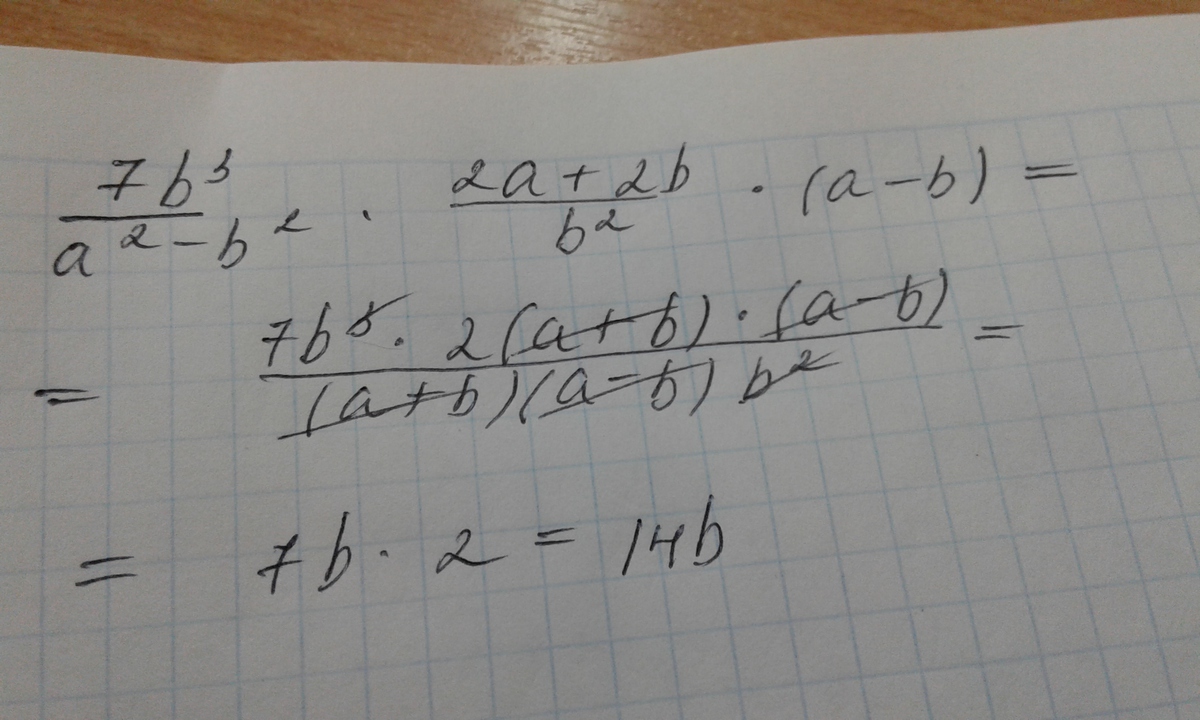 7b³/(a² - b²) · (2a + 2b)/b² · (a - b) =
= (7b³ · 2(a + b) · (a - b))/((a + b)(a - b) b²) =
= 7b · 2 = 14b